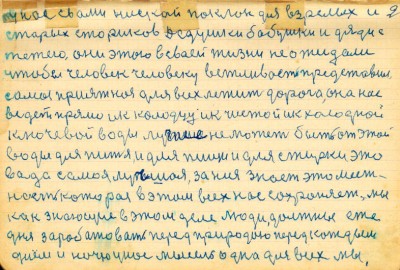 у нас с вами низкий поклон для взрслых и
старых стариков дедушки бабушки и дяди с
тетего, они этого всваей жизни не ожидали
чтобы человек человеку ветливость представил
самоя приятноя для всех летит дорога, она нас
ведет прямо ик колодцу ик чистой ик халодной
ключевой воды лучше неможет быть от этой
воды для питя, и для пищи и для стирки это
вада самоя лутшоя, за ния знает это мест-
ность которая в этом всех нас сохраняет, мы
как знающие в этом деле люди должны ета
дня заработовать перед природою перед каждым
днём и ночю у нас мысель одна для всех мы,